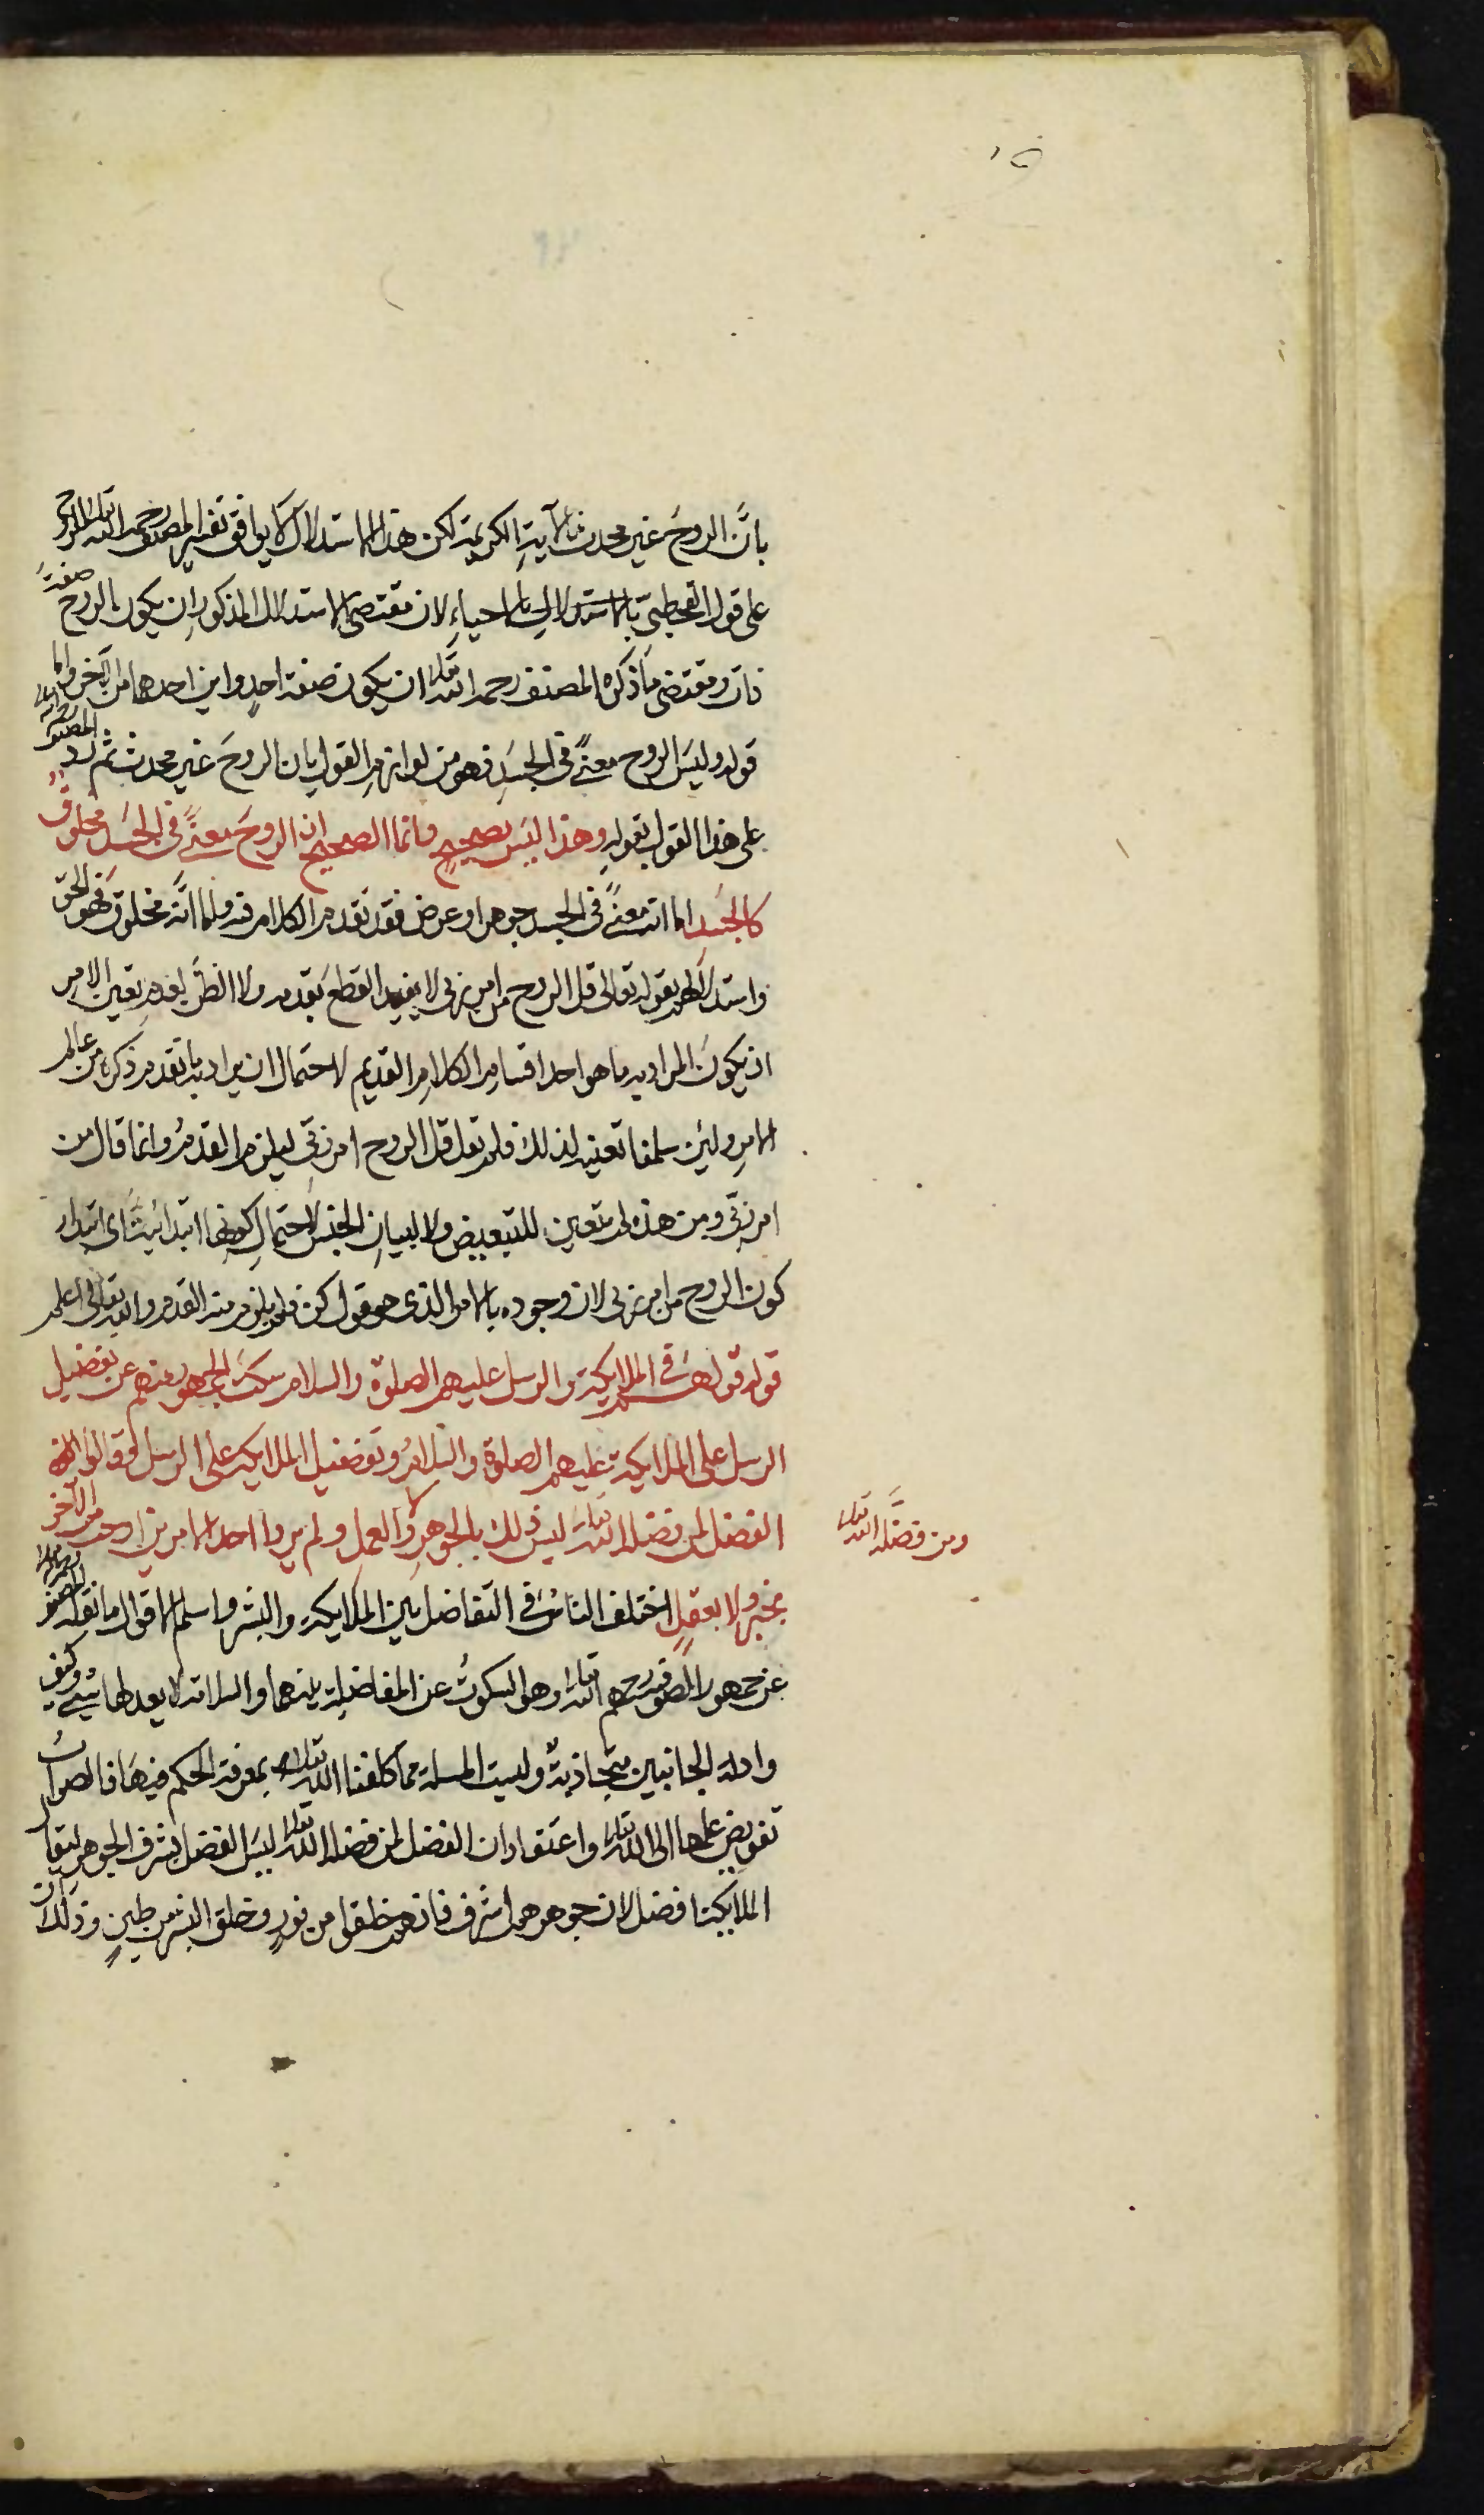 بانَّ الروحَ غير محدث بالآيةِ الكريمة لكن هذا الاستدلال لا يوافق تفسير المصنف رحمه الله تعالى الروح
على قول القحطبيّ بالاستدلال بالاحياءِ لان مقتضى الاستدلال المذكور ان يكون الروح صفةَ
ذات ومقتضى ما ذكره المصنف رحمه الله تعالى ان يكون صفة احدٍ واين احدهما من الآخر واما
قوله وليسَ الروح معنىً في الجسَدِ فهو من لوازمِ القول بان الروحَ غير محدث ثم ردّ المصنف رحمه الله تعالى
على هذا القول بقولهِ وهذا ليسَ بصحيحٍ وانما الصحيح ان الروحَ معنىً في الجسَد مخلوقٌ
كالجسَدِ اما انه معنىً في الجسد جوهر او عرض فقد تقدم الكلام فيه واما انَّه مخلوق فهو الحق
واستدلالهم بقوله تعالى قل الروح من امر ربى لا يفيد القطعَ بقدمه ولا الظنَّ لعدم تعين الامر
ان يكونَ المراد به ما هو احد اقسام الكلامِ القديم لاحتمال ان يراد به ما تقدم ذكره من عالم
الامرِ ولئن سلمنا تعينه لذلك فلم يقل قل الروح امر ربّى ليلزم القدمُ وانما قال من
امر ربّي ومن هذه لم تتعين للتبعيض ولا لبيان الجنس لاحتمال كونها ابتدائيةً اى ابتداء
كون الروح من امر ربى لان وجوده بالامر الذى هو قول كن فلم يلزم منه القدم والله تعالى اعلم
قوله قولهم في الملايكة والرسل عليهم الصلوة والسلام سكتَ الجمهور منهم عن تفضيل
الرسل على الملايكة عليهم الصلوة والسلامُ وتفضيل الملايكة على الرسل وقالوا
الفضل لمن فضله الله تعالى ليسَ ذلك بالجوهرِ ولا العمل ولم يروا احد الامرين اوجب من الآخر
ومن فضَّله الله تعالى
بخبرٍ ولا بعقلٍ اختلف الناسُ في التفاضل بين الملايكة والبشر واسلم الاقوال ما نقله المصنف رحمه الله تعالى
عن جمهور الصوفية رحمهم الله تعالى وهو السكوتُ عن المفاضلة بينهما والسلامة لا يعدلها شيءٌ وكيف
وادلة الجانبين متجاذبةٌ وليست المسلة مما كلفنا الله تعالى بمعرفة الحكم فيهَا فالصوابُ
تفويض علمها الى الله تعالى واعتقاد ان الفضل لمن فضله الله تعالى ليسَ الفضل بشرف الجوهر ليقال
الملايكة افضل لان جوهرهم اشرف فانهم خلقوا من نورٍ وخلق البشر من طينٍ وذلك ان